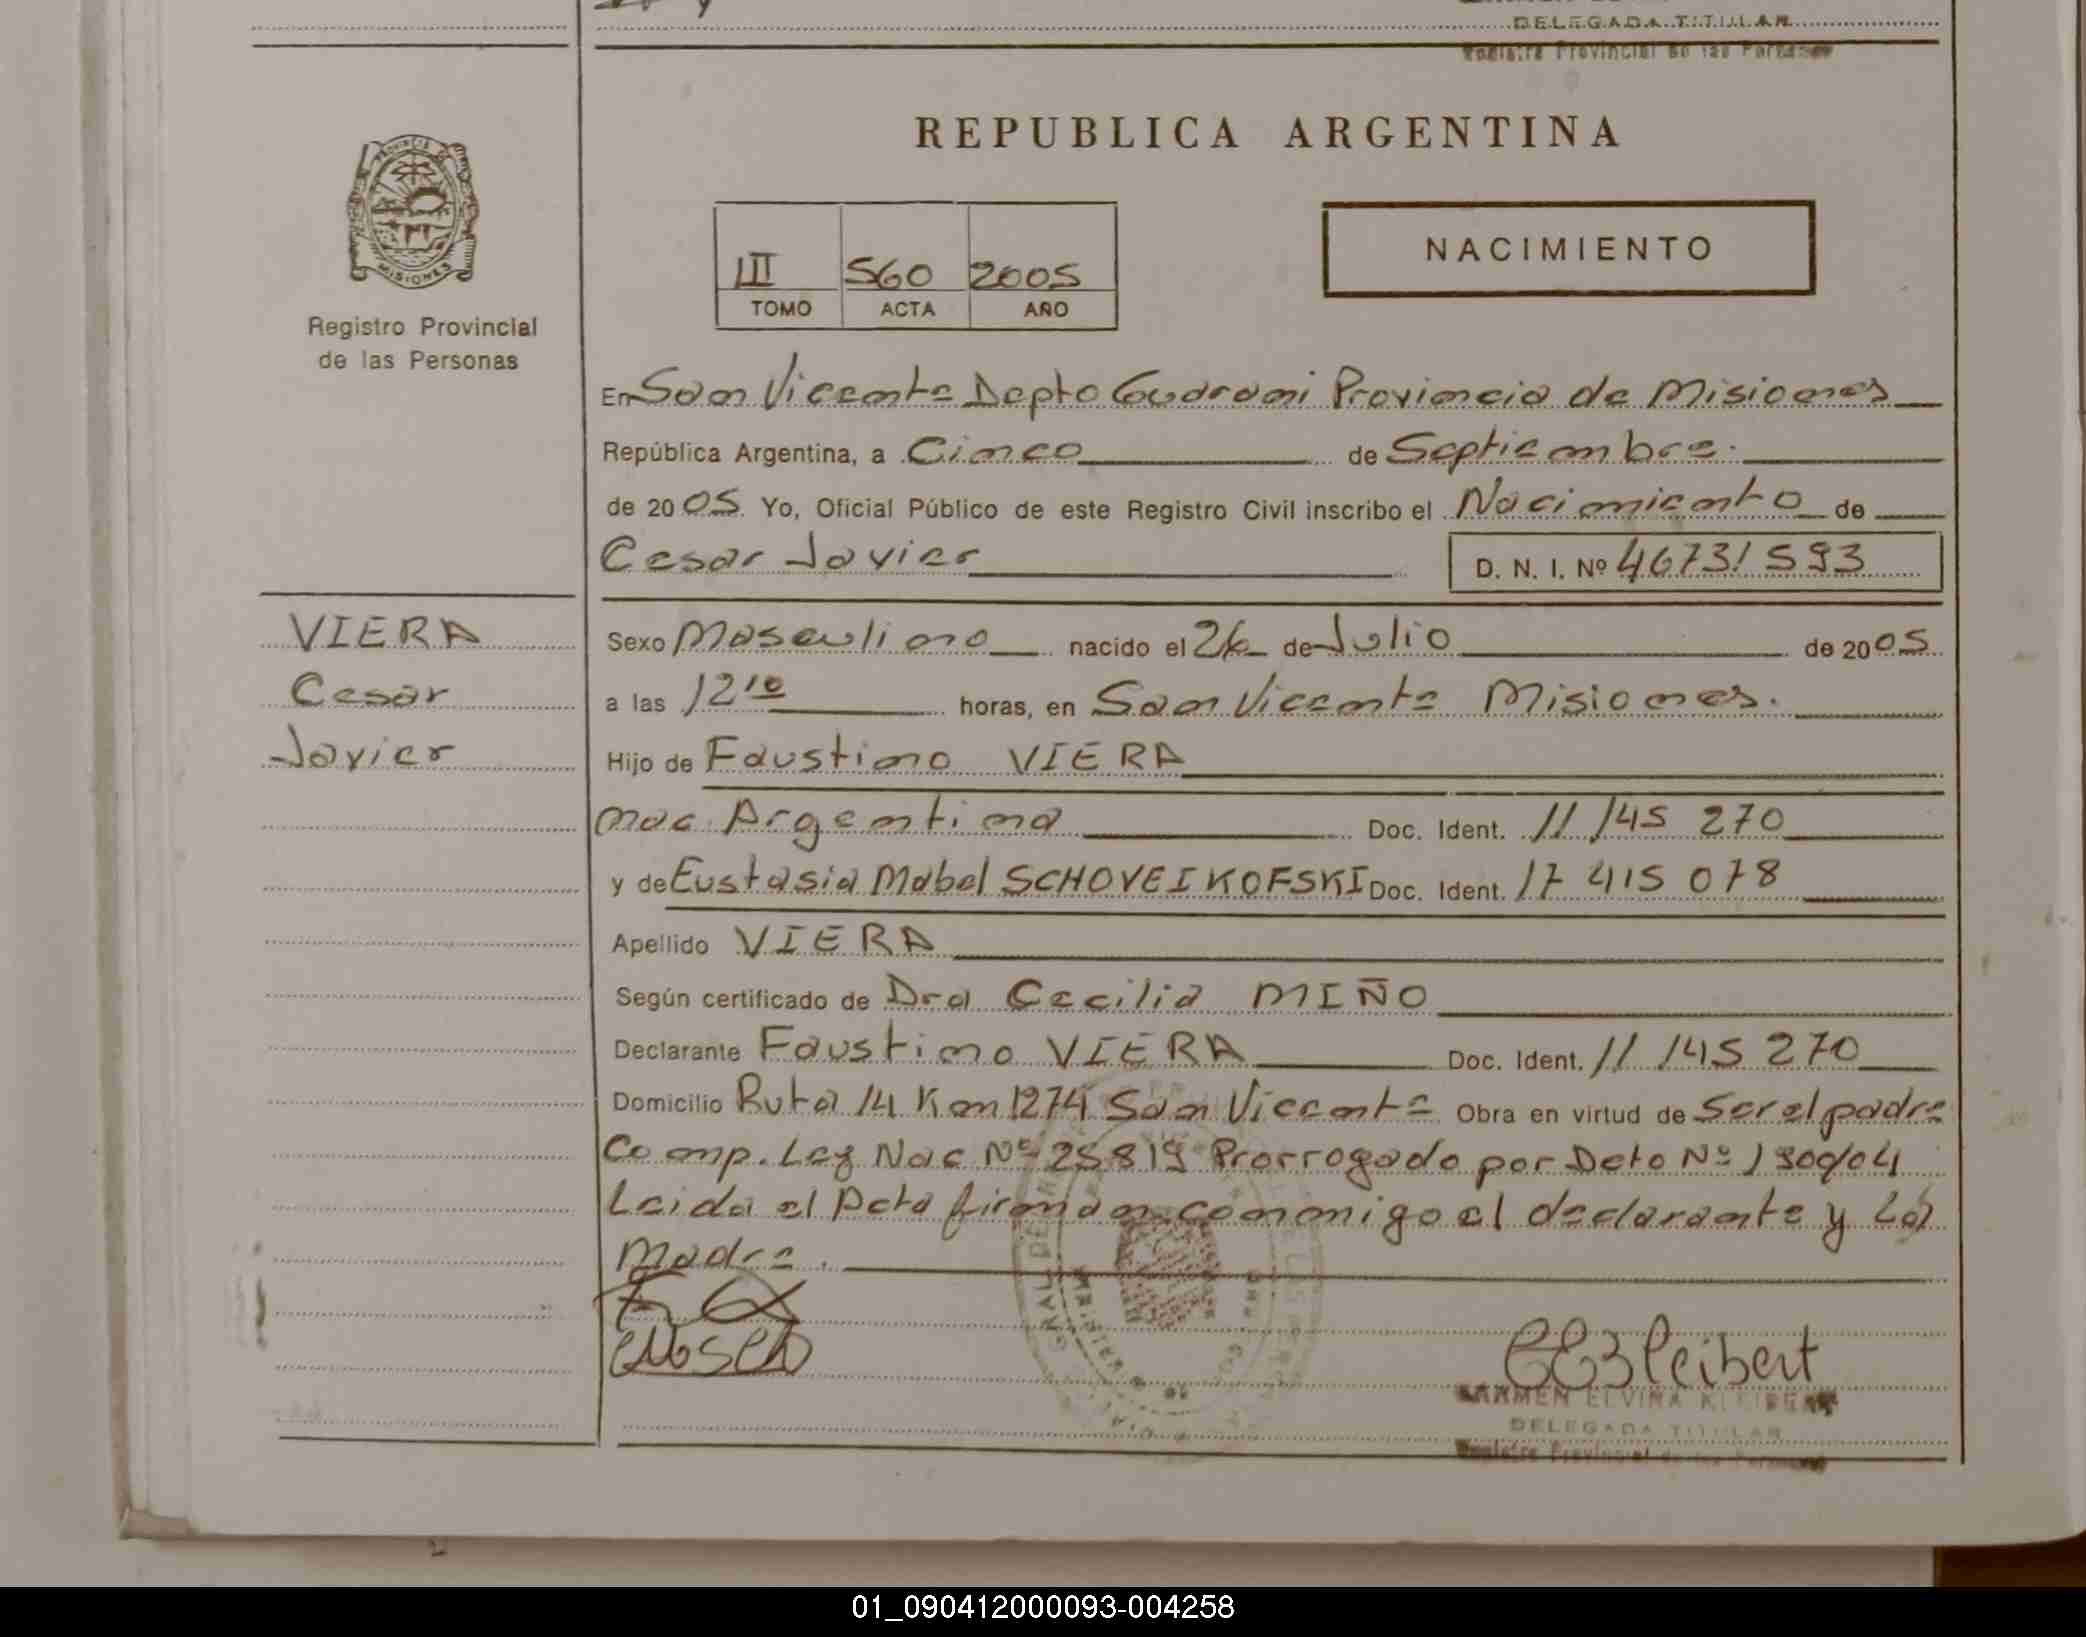 DELEGADA TITULAR
Registro Provincial de las Personas
REPUBLICA ARGENTINA
PROVINCIA DE
MISIONES
Registro Provincial
de las Personas
III 560 2005
TOMO ACTA AÑO
NACIMIENTO
En San Vicente Depto Guarani Provincia de Misiones
República Argentina, a Cinco de Septiembre.
de 2005. Yo, Oficial Público de este Registro Civil inscribo el Nacimiento de
Cesar Javier D. N. I. Nº 46731593
VIERA
Cesar
Javier
Sexo Masculino nacido el 26 de Julio de 2005
a las 12 10 horas, en San Vicente Misiones.
Hijo de Faustino VIERA
nac. Argentina Doc. Ident. 11 145 270
y de Eustasia Mabel SCHOVEIKOFSKI Doc. Ident. 17 415 078
Apellido VIERA
Según certificado de Dra Cecilia MIÑO
Declarante Faustino VIERA Doc. Ident. 11 145 270
Domicilio Ruta 14 Km 1274 San Vicente Obra en virtud de Ser el padre
Comp. Ley Nac Nº 25819 Prorrogado por Dcto Nº 1300/04
Leida el Acta firman conmigo el declarante y La
Madre.
CARMEN ELVIRA KLEIBERT
DELEGADA TITULAR
Registro Provincial de las Personas
01_090412000093-004258